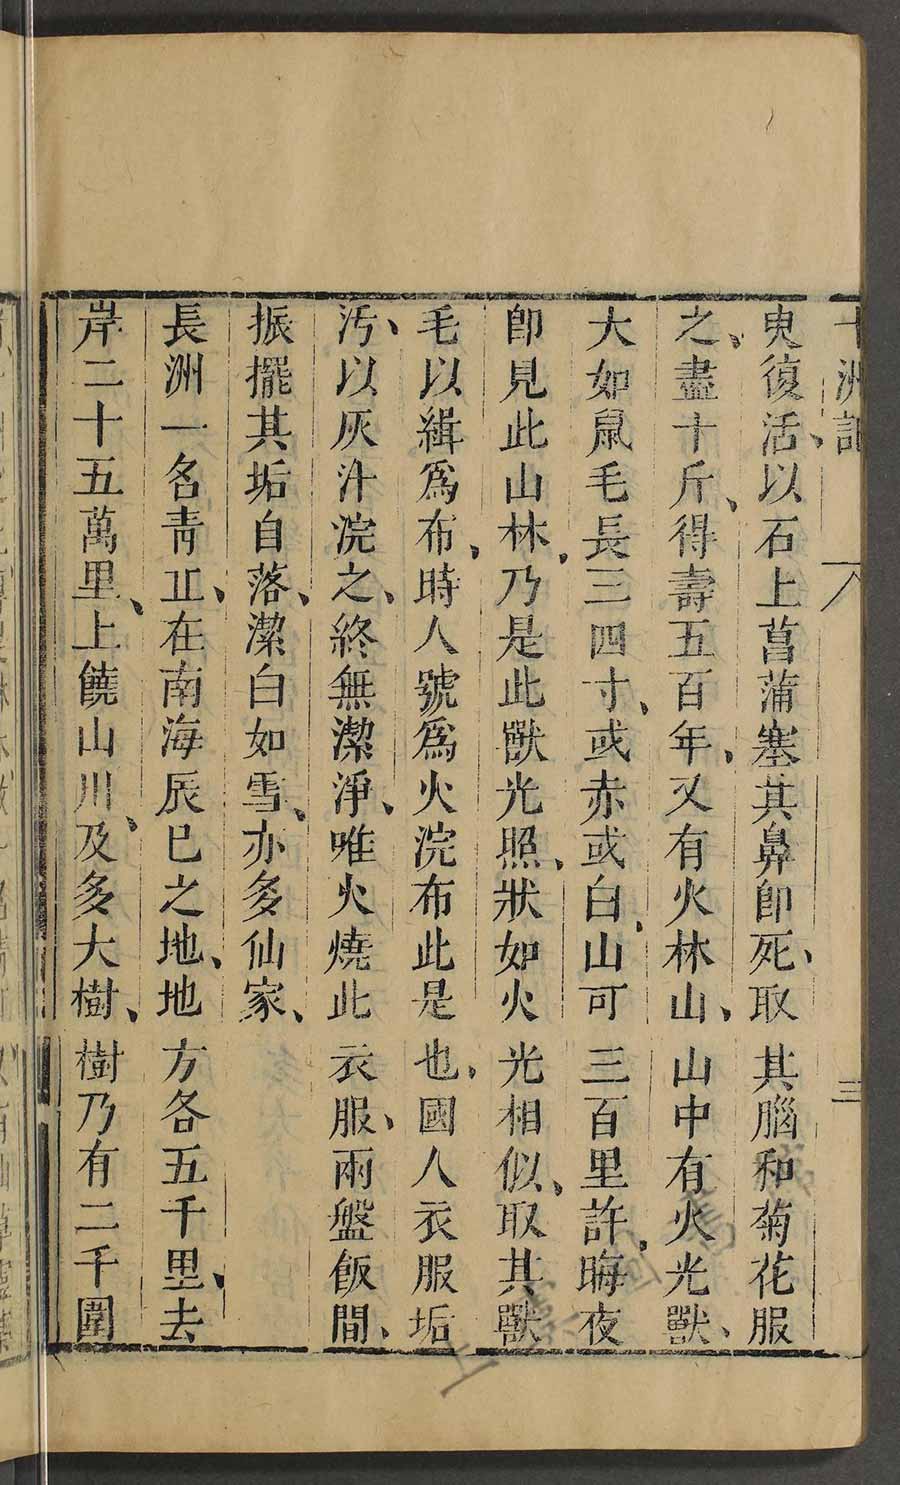 十洲記
三
臾復活以石上菖蒲塞其鼻卽死、取其腦和菊花服
之、盡十斤、得壽五百年、又有火林山、山中有火光獸、
大如鼠毛長三四寸、或赤或白、山可三百里許、晦夜
卽見此山林、乃是此獸光照、狀如火光相似、取其獸
毛以緝爲布、時人號爲火浣布此是也、國人衣服垢
汚、以灰汁浣之、終無潔淨、唯火燒此衣服、兩盤飯間、
振擺其垢自落、潔白如雪、亦多仙家、
長洲一名靑丠、在南海辰巳之地、地方各五千里、去
岸二十五萬里、上饒山川、及多大樹、樹乃有二千圍